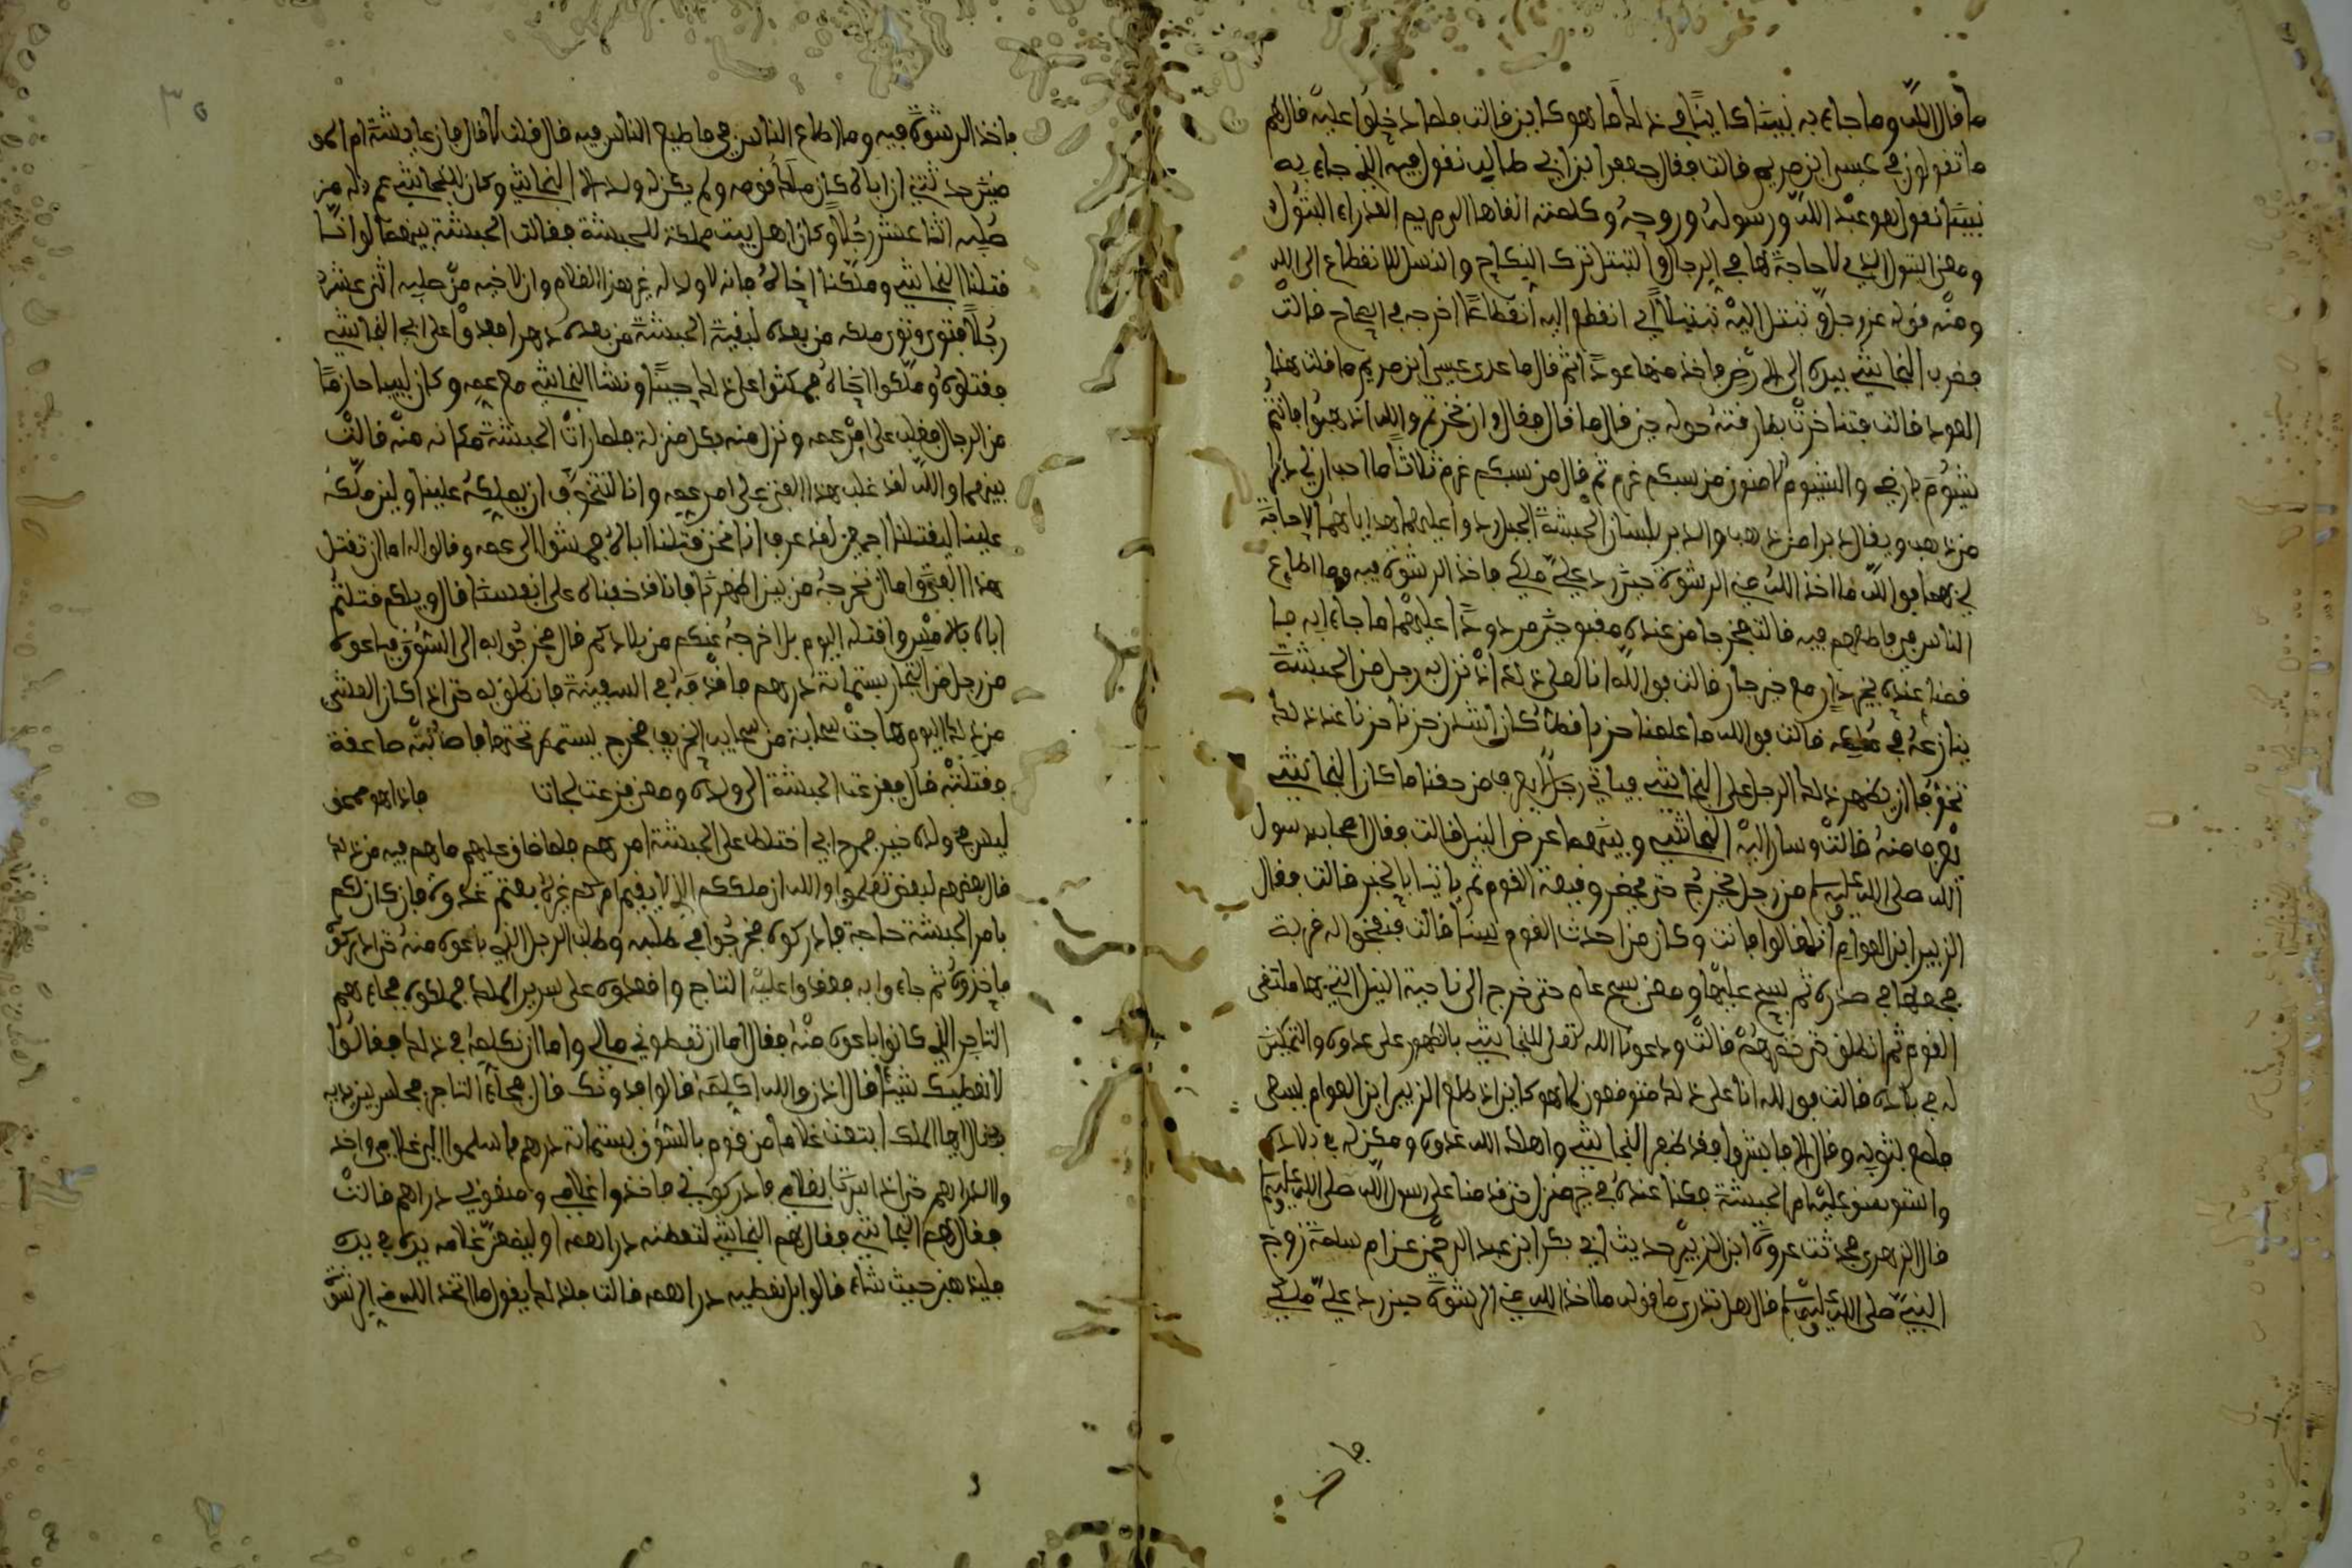 ما قال الله وما جاء به نبينا كاينا في ذلك ما هو كاين قالت فلما دخلوا عليه قال لهم
ما تقولون في عيسى ابن مريم قالت فقال جعفر ابن ابي طالب نقول فيه الذي جاء به
نبينا نقول هو عبد الله ورسوله وروحه وكلمته القاها الى مريم العذراء البتول
ومعنى البتول التي لا حاجة لها في الرجال والتبتل ترك النكاح والنسل للانقطاع الى الله
ومنه قوله عز وجل وتبتل اليه تبتيلا اي انقطع اليه انقطاعا اخرجه في الصحاح قالت
فضرب النجاشي بيده الى الارض فاخذ منها عودا ثم قال ما عدى عيسى ابن مريم ما قلت هذا
العود قالت فتناخرت بطارقته حوله حين قال ما قال فقال وان نخرتم والله اذهبوا فانتم
شيوم بارضي والشيوم الامنون من سبكم غرم ثم قال من سبكم غرم ثلاثا ما احب ان لي دبرا
من ذهب ويقال دبرا من ذهب والدبر بلسان الحبشة الجبل ردوا عليهما هداياهما لا حاجة
لي بها فوالله ما اخذ الله مني الرشوة حين رد علي ملكي فاخذ الرشوة فيه وما اطاع
الناس في فاطيعهم فيه قالت فخرجا من عنده مقبوحين مردودا عليهما ما جاءا به
فقمنا عنده بخير دار مع خير جار قالت فوالله انا لعلى ذلك اذ نزل به رجل من الحبشة
ينازعه في ملكه قالت فوالله ما علمنا حزنا قط كان اشد من حزن احزننا عند ذلك
تخوفا ان يظهر ذلك الرجل على النجاشي فياتي رجل لا يعرف من حقنا ما كان النجاشي
يعرف منه قالت وسار اليه النجاشي وبينهما عرض النيل قالت فقال اصحاب رسول
الله صلى الله عليه وسلم من رجل يخرج حتى يحضر وقيعة القوم ثم ياتينا بالخبر قالت فقال
الزبير ابن العوام انا قالوا فانت وكان من احدث القوم سنا قالت فنفخوا له قربة
فجعلها في صدره ثم سبح عليها ومعنى سبح عام حتى خرج الى ناحية النيل التي بها ملتقى
القوم ثم انطلق حتى حضرهم قالت ودعونا الله تعلى للنجاشي بالظهور على عدوه والتمكين
له في بلاده قالت فوالله انا على ذلك متوقعون لما هو كاين اذ طلع الزبير ابن العوام يسعى
فلمع بثوبه وقال الا فابشروا فقد ظهر النجاشي واهلك الله عدوه ومكن له في بلاده
واستوسق عليه امر الحبشة فكنا عنده في خير منزل حتى قدمنا على رسول الله صلى الله عليه وسلم
قال الزهري فحدثت عروة ابن الزبير حديث ابي بكر ابن عبد الرحمن عن ام سلمة زوج
النبي صلى الله عليه وسلم قال هل تدري ما قوله ما اخذ الله مني الرشوة حين رد علي ملكي
فاخذ الرشوة فيه وما اطاع الناس في فاطيع الناس فيه قال قلت لا قال فان عايشة ام المو
منين حدثتني ان اباه كان ملك قومه ولم يكن له ولد الا النجاشي وكان للنجاشي عم له من
صلبه اثنا عشر رجلا وكان اهل بيت مملكة الحبشة فقالت الحبشة بينها لو انا
قتلنا النجاشي وملكنا اخاه فانه لا ولد له غير هذا الغلام وان لاخيه من صلبه اثنى عشر
رجلا فتوارثوا ملكه من بعده لبقية الحبشة من بعده دهرا فعدوا على ابي النجاشي
فقتلوه وملكوا اخاه فمكثوا على ذلك حينا ونشا النجاشي مع عمه وكان لبيبا حازما
من الرجال فغلب على امر عمه ونزل منه بكل منزلة فلما رات الحبشة مكانه منه قالت
بينهما والله لقد غلب هذا الفتى على امر عمه وانا لنتخوف ان يملكه علينا ولين ملكه
علينا ليقتلنا اجمعين لقد عرف انا نحن قتلنا اباه فمشوا الى عمه وقالوا له اما ان تقتل
هذا الفتى واما ان تخرجه من بين اظهرنا فانا قد خفناه على انفسنا قال ويلكم قتلتم
اباه بالامس واقتله اليوم بل اخرجه عنكم من بلادكم قال فخرجوا به الى السوق فباعوه
من رجل من التجار بستماية درهم فقذفه في السفينة فانطلق به حتى اذا كان العشى
من ذلك اليوم هاجت سحابة من سحايب الخريف فخرج يستمطر تحتها فاصابته صاعقة
فقتلته قال ففزعت الحبشة الى ولده ومعنى فزعت لجات فاذا هو محمق
ليس في ولده خير فمرج اي اختلط على الحبشة امرهم فلما ضاق عليهم ما هم فيه من ذلك
قال بعضهم لبعض تعلموا والله ان ملككم الذي لا يقيم امركم غيره لا بعتم غدوة فان كان لكم
بامر الحبشة حاجة فادركوه فخرجوا في طلبه وطلب الرجل الذي باعوه منه حتى ادركوه
فاخذوه ثم جاءوا به فعقدوا عليه التاج واقعدوه على سرير الملك فملكوه فجاءهم
التاجر الذي كانوا باعوه منه فقال اما ان تعطوني مالي واما ان نكلمه في ذلك فقالوا
لا نعطيك شيئا قال اذن والله اكلمه قالوا فدونك قال فجاءه التاجر فجلس بين يديه
وقال ايها الملك ابتعت غلاما من قوم بالسوق بستماية درهم فاسلموا الي غلامي واخذ
وا الدراهم حتى اذا سرت بغلامي فادركوني فاخذوا غلامي ومنعوني دراهم قالت
فقال لهم النجاشي فقال لهم النجاشي لتعطنه دراهمه او ليضعن غلامه يده في يده
فليذهبن حيث شاء قالوا بل نعطيه دراهمه قالت فلذلك يقول ما اخذ الله مني الرشوة